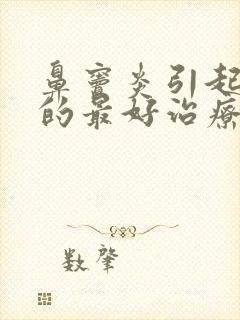 鼻窦炎引起
的最好治疗
数肇